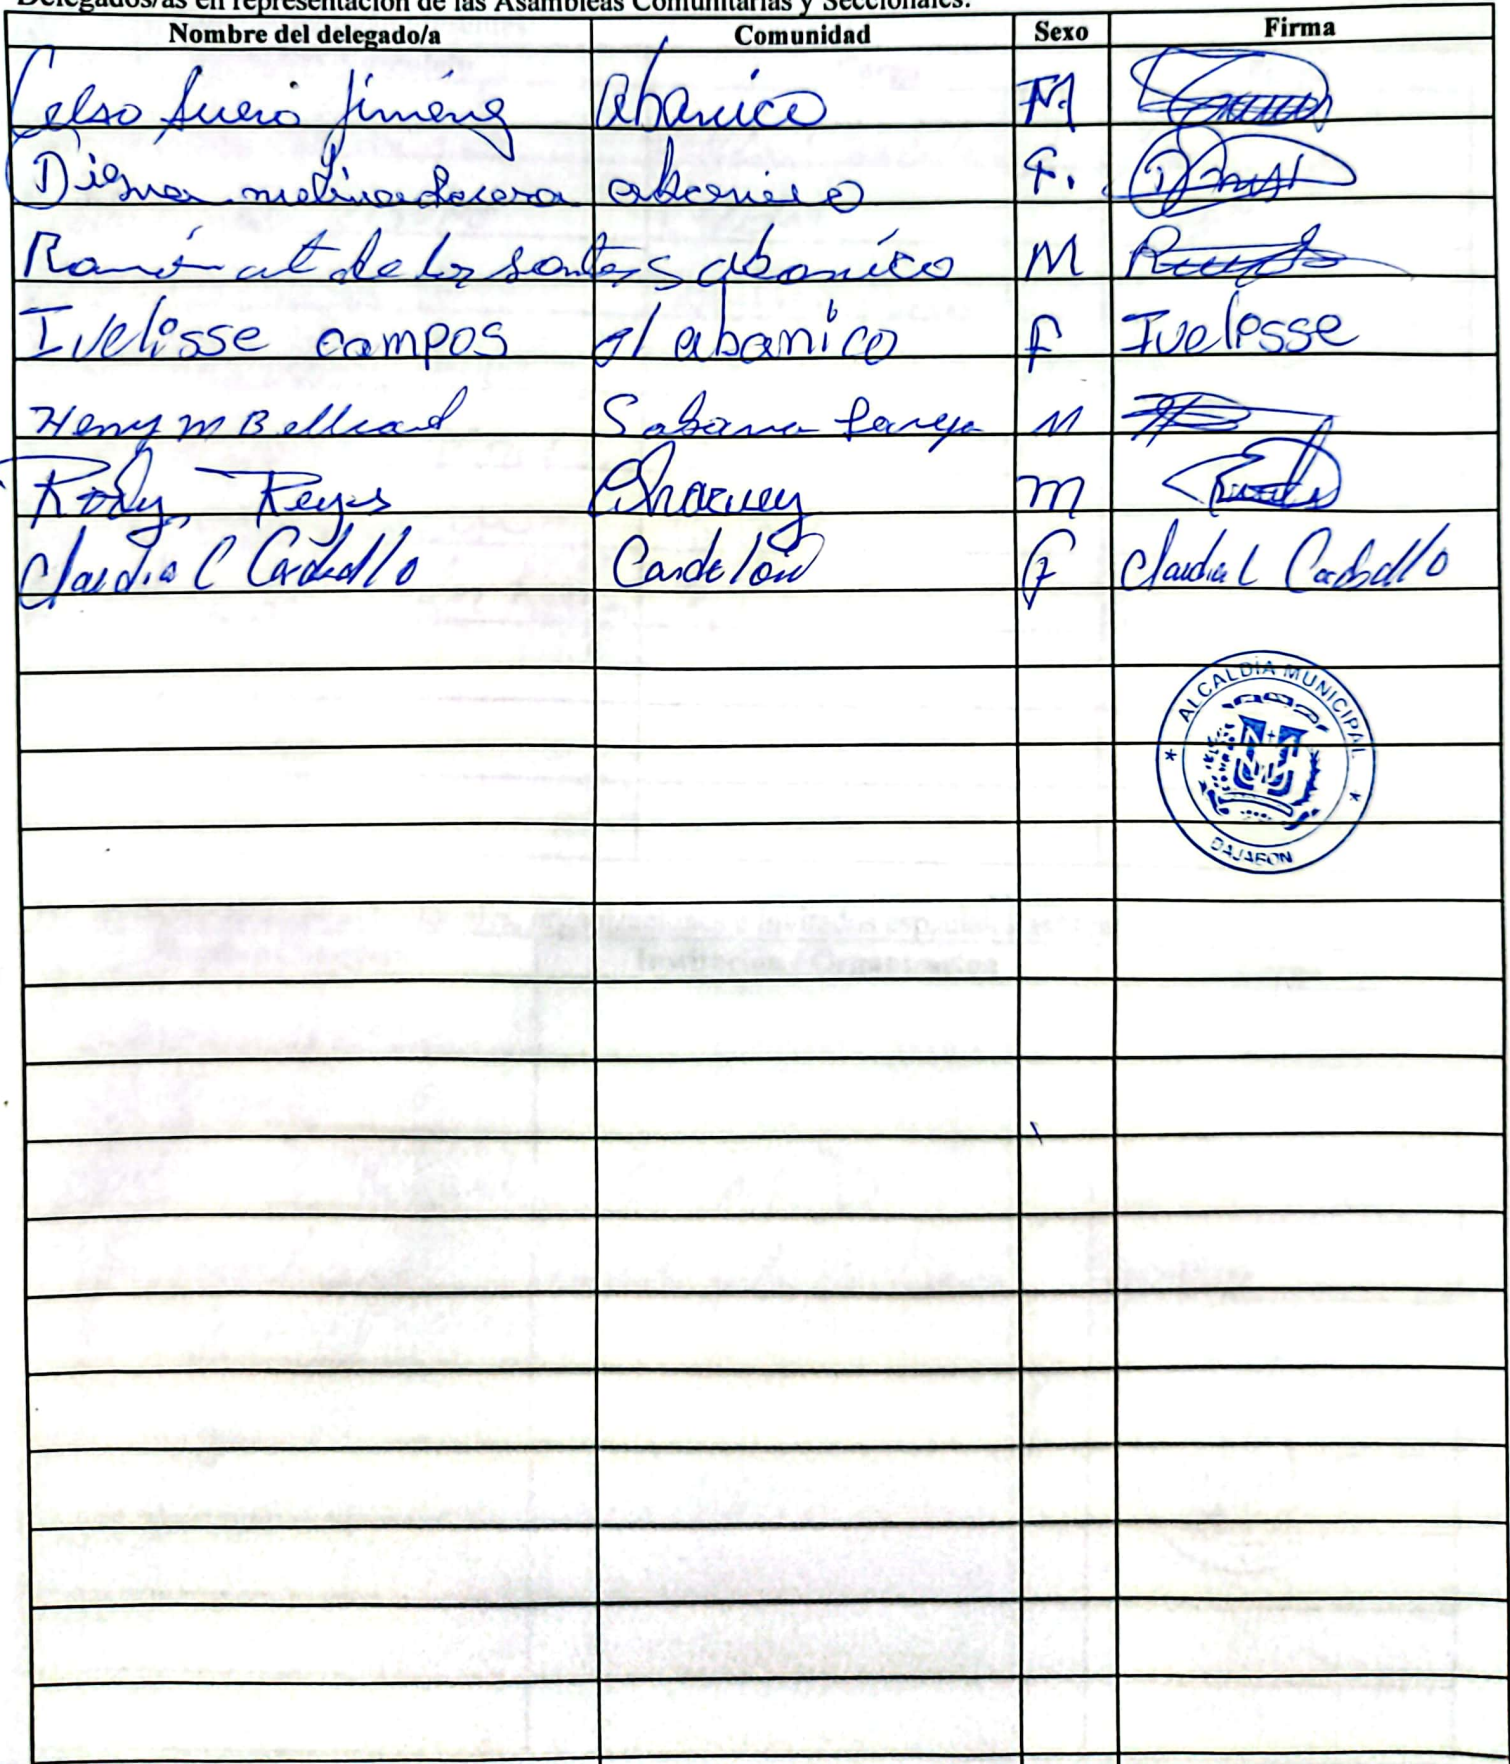 Delegados/as en representación de las Asambleas Comunitarias y Seccionales.
Nombre del delegado/a Comunidad Sexo Firma
Celso Suero Jiménez abanico M
Digna molina abanico F.
Ramón at de los santos abanico M
Ivelisse campos el abanico F Ivelisse
Henry M Belliard Sabana Larga M
Rody Reyes Chacuey M
Claudia C Carballo Candelón F Claudia C Carballo
ALCALDÍA MUNICIPAL
DAJABON